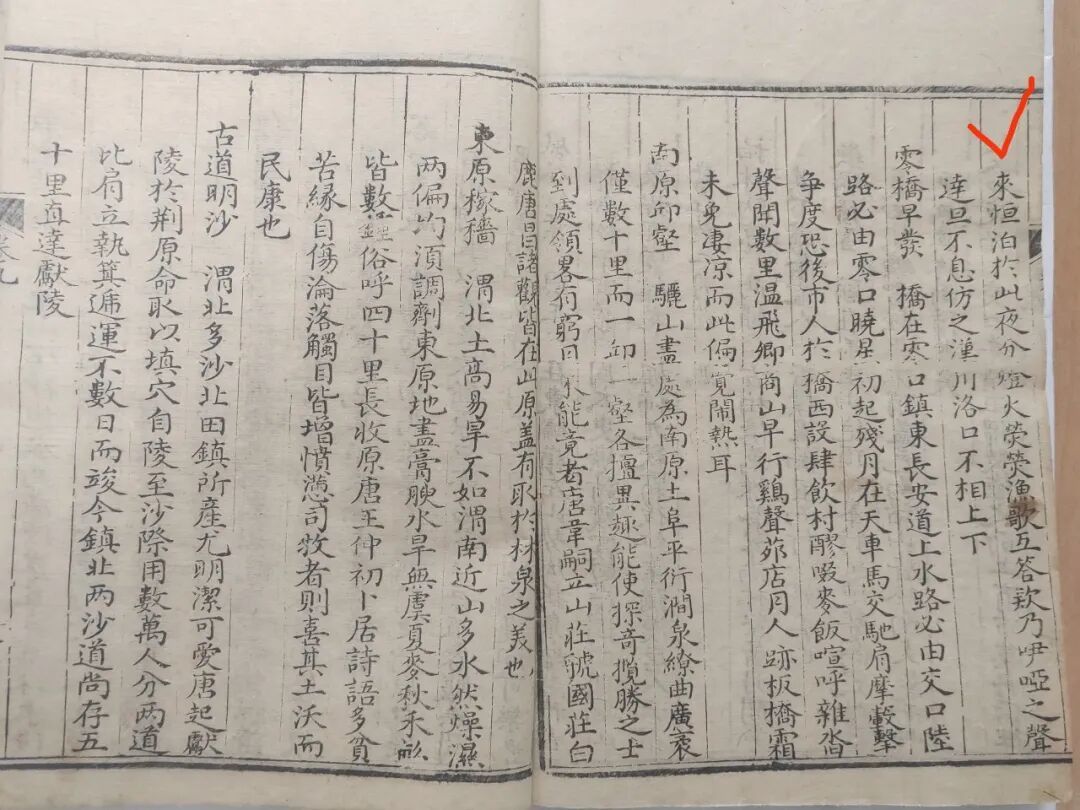 來恒泊於此夜分燈火熒熒漁歌互答欸乃咿啞之聲
達旦不息仿之潼川洛口不相上下
零橋早發　橋在零口鎮東長安道上水路必由交口陸
路必由零口曉星初起殘月在天車馬交馳肩摩轂擊
爭度恐後市人於橋西設肆飲村醪啜麥飯喧呼雜沓
聲聞數里溫飛卿商山早行鷄聲茆店月人跡板橋霜
未免凄凉而此偏覺鬧熱耳
南原邱壑　驪山盡處為南原土阜平衍澗泉繚曲廣袤
僅數十里而一邱一壑各擅異趣能使探奇攬勝之士
到處領畧有窮日不能竟者唐韋嗣立山莊號國莊白
鹿唐昌諸觀皆在此原盖有取於林泉之美也
東原稼穡　渭北土高易旱不如渭南近山多水然燥濕
兩偏均須調劑東原地盡膏腴水旱無虞夏麥秋禾畝
皆數鍾俗呼四十里長收原唐王仲初卜居詩語多貧
苦緣自傷淪落觸目皆增憤懣司牧者則喜其土沃而
民康也
古道明沙　渭北多沙北田鎮所產尤明潔可愛唐起獻
陵於荆原命取以填穴自陵至沙際用數萬人分兩道
比肩立執箕遞運不數日而竣今鎮北兩沙道尚存五
十里真達獻陵
卷九